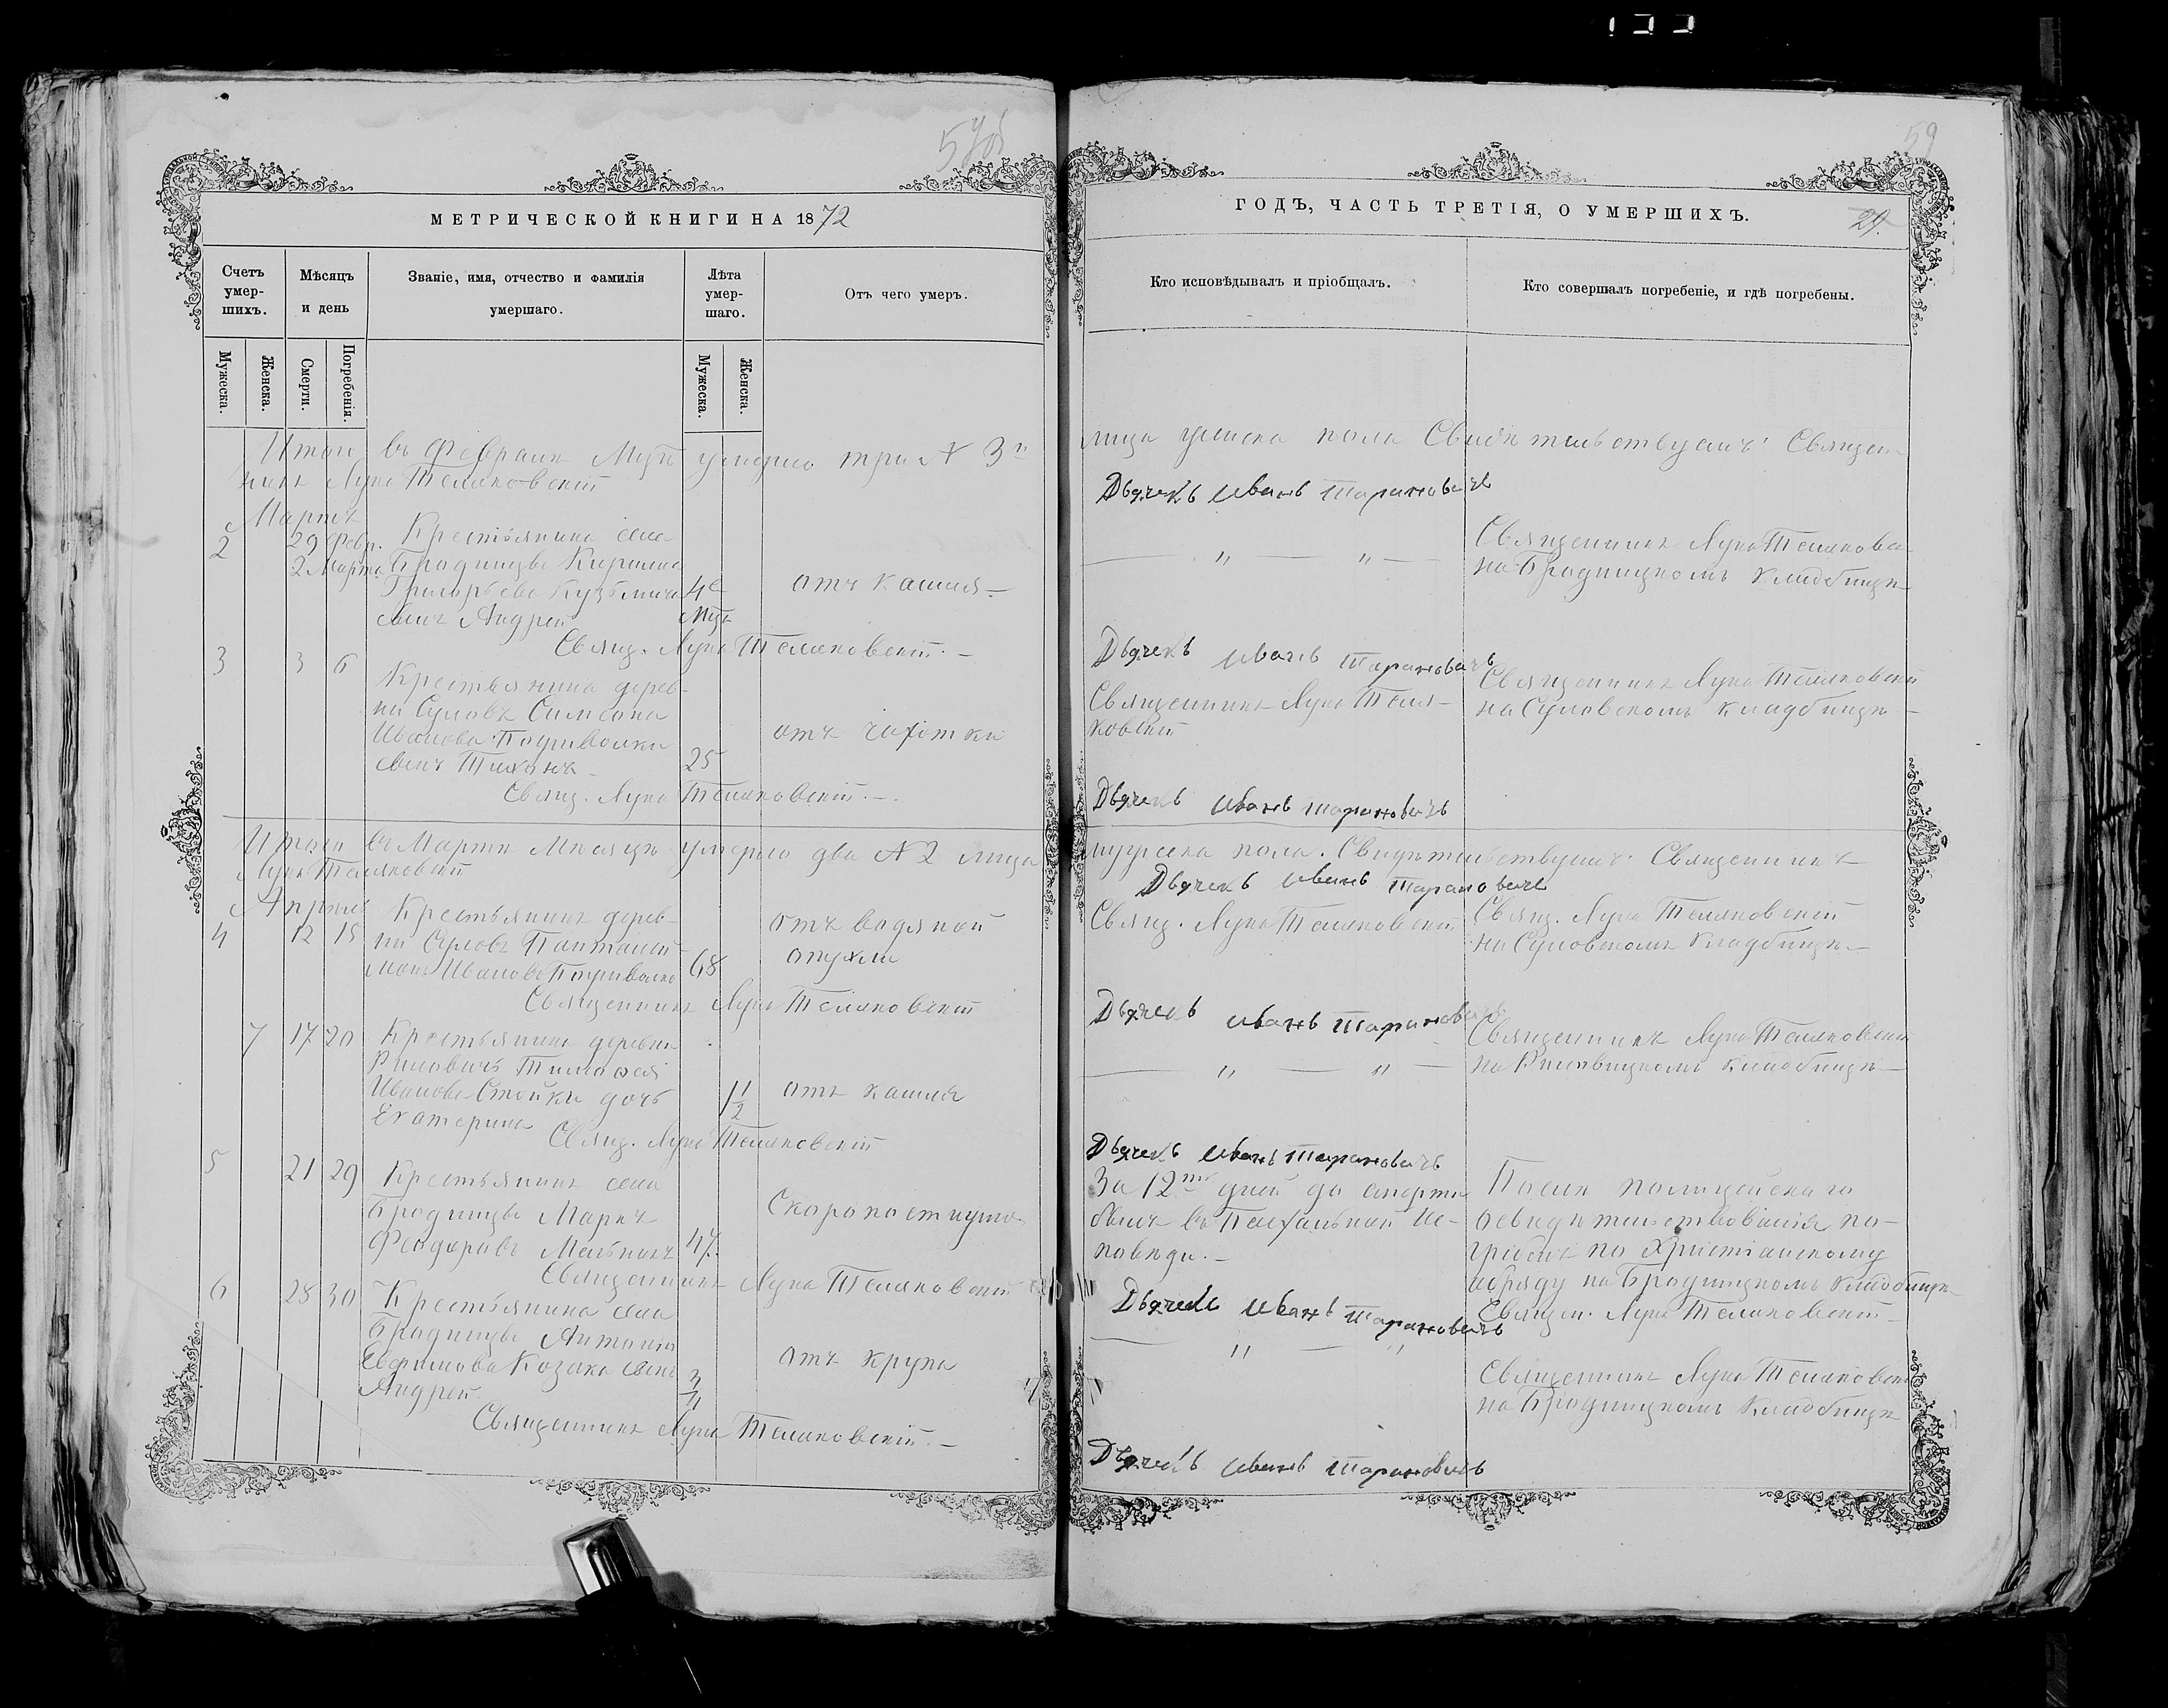 58об
59
МЕТРИЧЕСКОЙ КНИГИ НА 1872
ГОДЪ, ЧАСТЬ ТРЕТІЯ, О УМЕРШИХЪ.
29.
Счетъ умер-шихъ.
Мѣсяцъ и день
Званіе, имя, отчество и фамилія умершаго.
Лѣта умер-шаго.
Отъ чего умеръ.
Кто исповѣдывалъ и пріобщалъ.
Кто совершалъ погребеніе, и гдѣ погребены.
Мужеска.
Женска.
Смерти.
Погребенія.
Мужеска.
Женска.
въ Февралѣ умерло три № 3
лица женска пола Свидѣтельствуемъ: Священ-
никъ Лука Теляковскій
Дьячекъ Иванъ Тарановичъ
Мартъ
2
29 Февр.
2 Марта
Крестьянина села
Бродницы Кирилла
Григорьева
сынъ Андрей
4
отъ кашля
Священникъ Лука
на Бродницкомъ кладбищѣ
Свящ. Лука Теляковскій.
Дьячекъ Иванъ Тарановичъ
3
3 6
Крестьянина дерев-
ни Симеона
Иванова
сынъ Тихонъ
25
отъ чахотки
Священникъ Лука Теля-
ковскій
Священникъ Лука Теляковскій
на кладбищѣ
Свящ. Лука Теляковскій.
Дьячекъ Иванъ Тарановичъ
въ Мартѣ Мѣсяцѣ умерло два № 2 лица
мужеска пола. Свидѣтельствуемъ: Священникъ
Лука Теляковскій
Дьячекъ Иванъ Тарановичъ
Апрѣль
4
12 15
Крестьянинъ дерев-
ни Пантелей-
монъ Ивановъ
68
отъ водяной
опухли
Свящ. Лука Теляковскій
Свящ. Лука Теляковскій
на кладбищѣ
Священникъ Лука Теляковскій
Дьячекъ Иванъ Тарановичъ
7
17 20
Крестьянина деревни
Тимофея
Иванова Стойки дочь
Екатерина
1 1/2
отъ кашля
Священникъ Лука Теляковскій
на кладбищѣ
Свящ. Лука Теляковскій
Дьячекъ Иванъ Тарановичъ
5
21 29
Крестьянинъ села
Бродницы Маркъ
Феодоровъ Мельникъ
47.
Скоропостижно
За 12 дней до смерти
былъ въ Пасхальной Ис-
повѣди.
Послѣ полицейскаго
освидѣтельствованія по-
гребенъ по Христіанскому
обряду на Бродницкомъ кладбищѣ
Священ. Лука Теляковскій
Священникъ Лука Теляковскій
Дьячекъ Иванъ Тарановичъ
6
28 30
Крестьянина села
Бродницы Антонія
Ефимова Козака сынъ
Андрей
отъ крупа
Священникъ Лука Теляковскій
на Бродницкомъ кладбищѣ
Священникъ Лука Теляковскій.
Дьячекъ Иванъ Тарановичъ